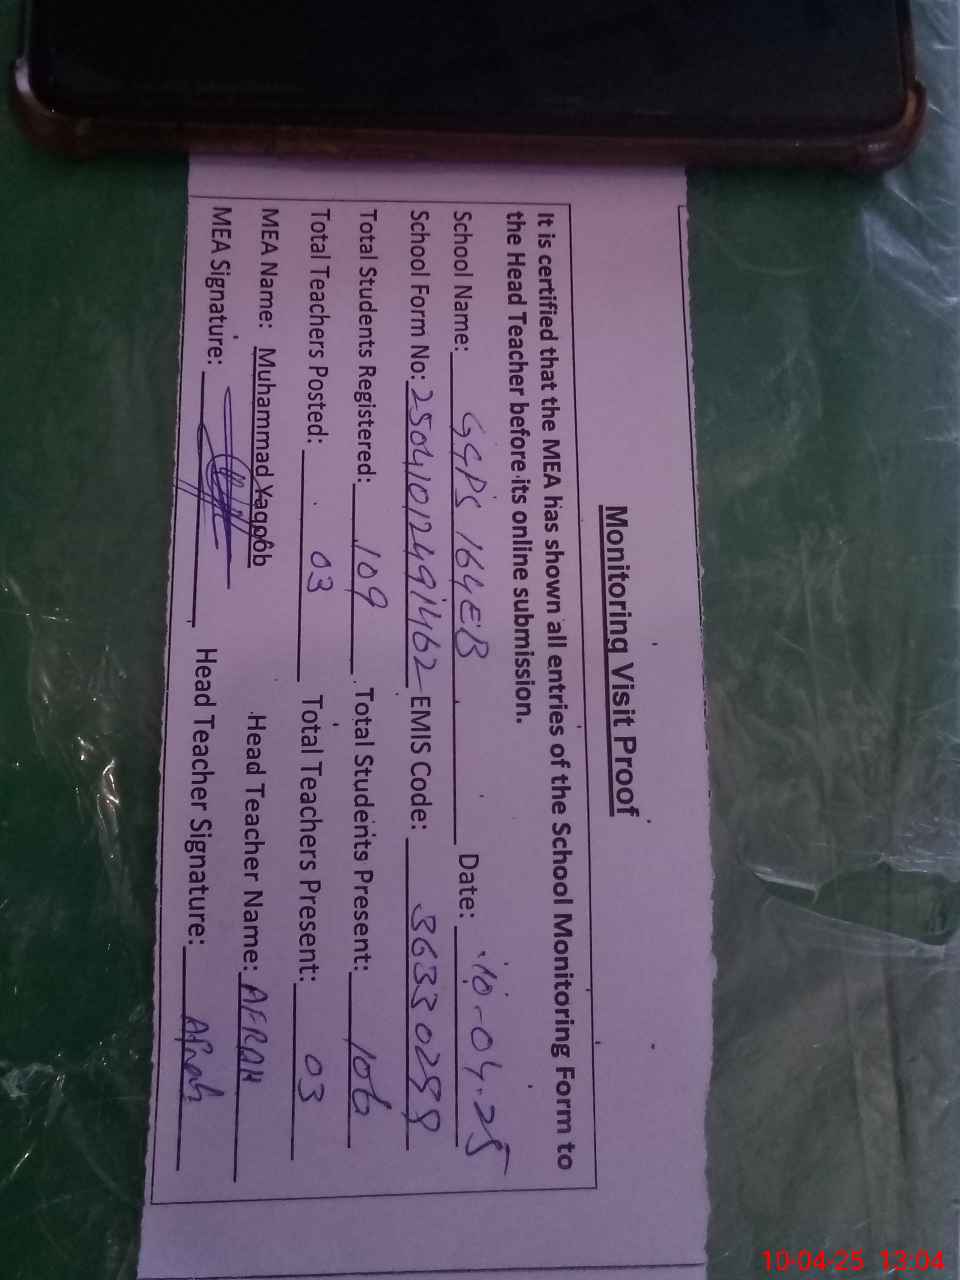 Monitoring Visit Proof
It is certified that the MEA has shown all entries of the School Monitoring Form to
the Head Teacher before its online submission.
School Name: GGPS 164EB Date: 10-04-25
School Form No: 25041012491462 EMIS Code: 36330299
Total Students Registered: 109 Total Students Present: 106
Total Teachers Posted: 03 Total Teachers Present: 03
MEA Name: Muhammad Yaqoob Head Teacher Name: AFRAH
MEA Signature: Head Teacher Signature: Afrah
10-04-25 13:04